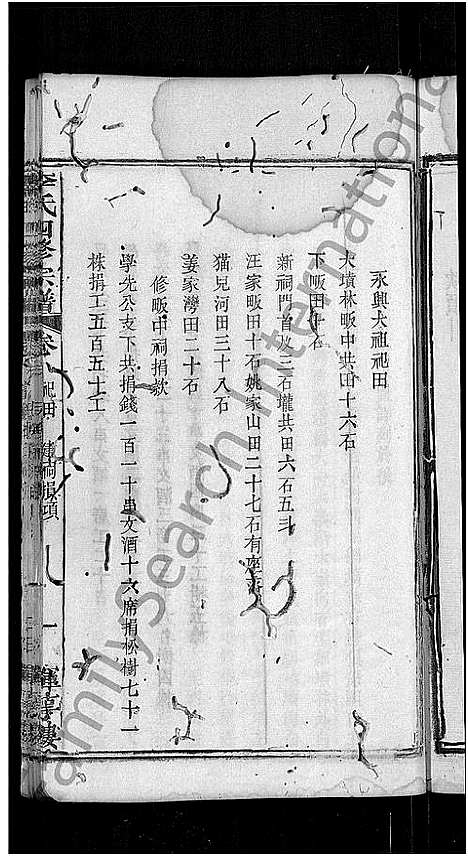 永興大祖祀田
大墳林畈中共田十六石
下畈田十石
新祠門首及三石壠共田六石五斗
汪家畈田十石姚家山田二十七石有座落
猫兒河田三十八石
姜家灣田二十石
修畈中祠捐款
學先公支下共捐錢一百一十串文酒十六席捐松樹七十一
株捐工五百五十工
李氏四修宗譜 卷 祀田 建祠捐項 一
FamilySearch International